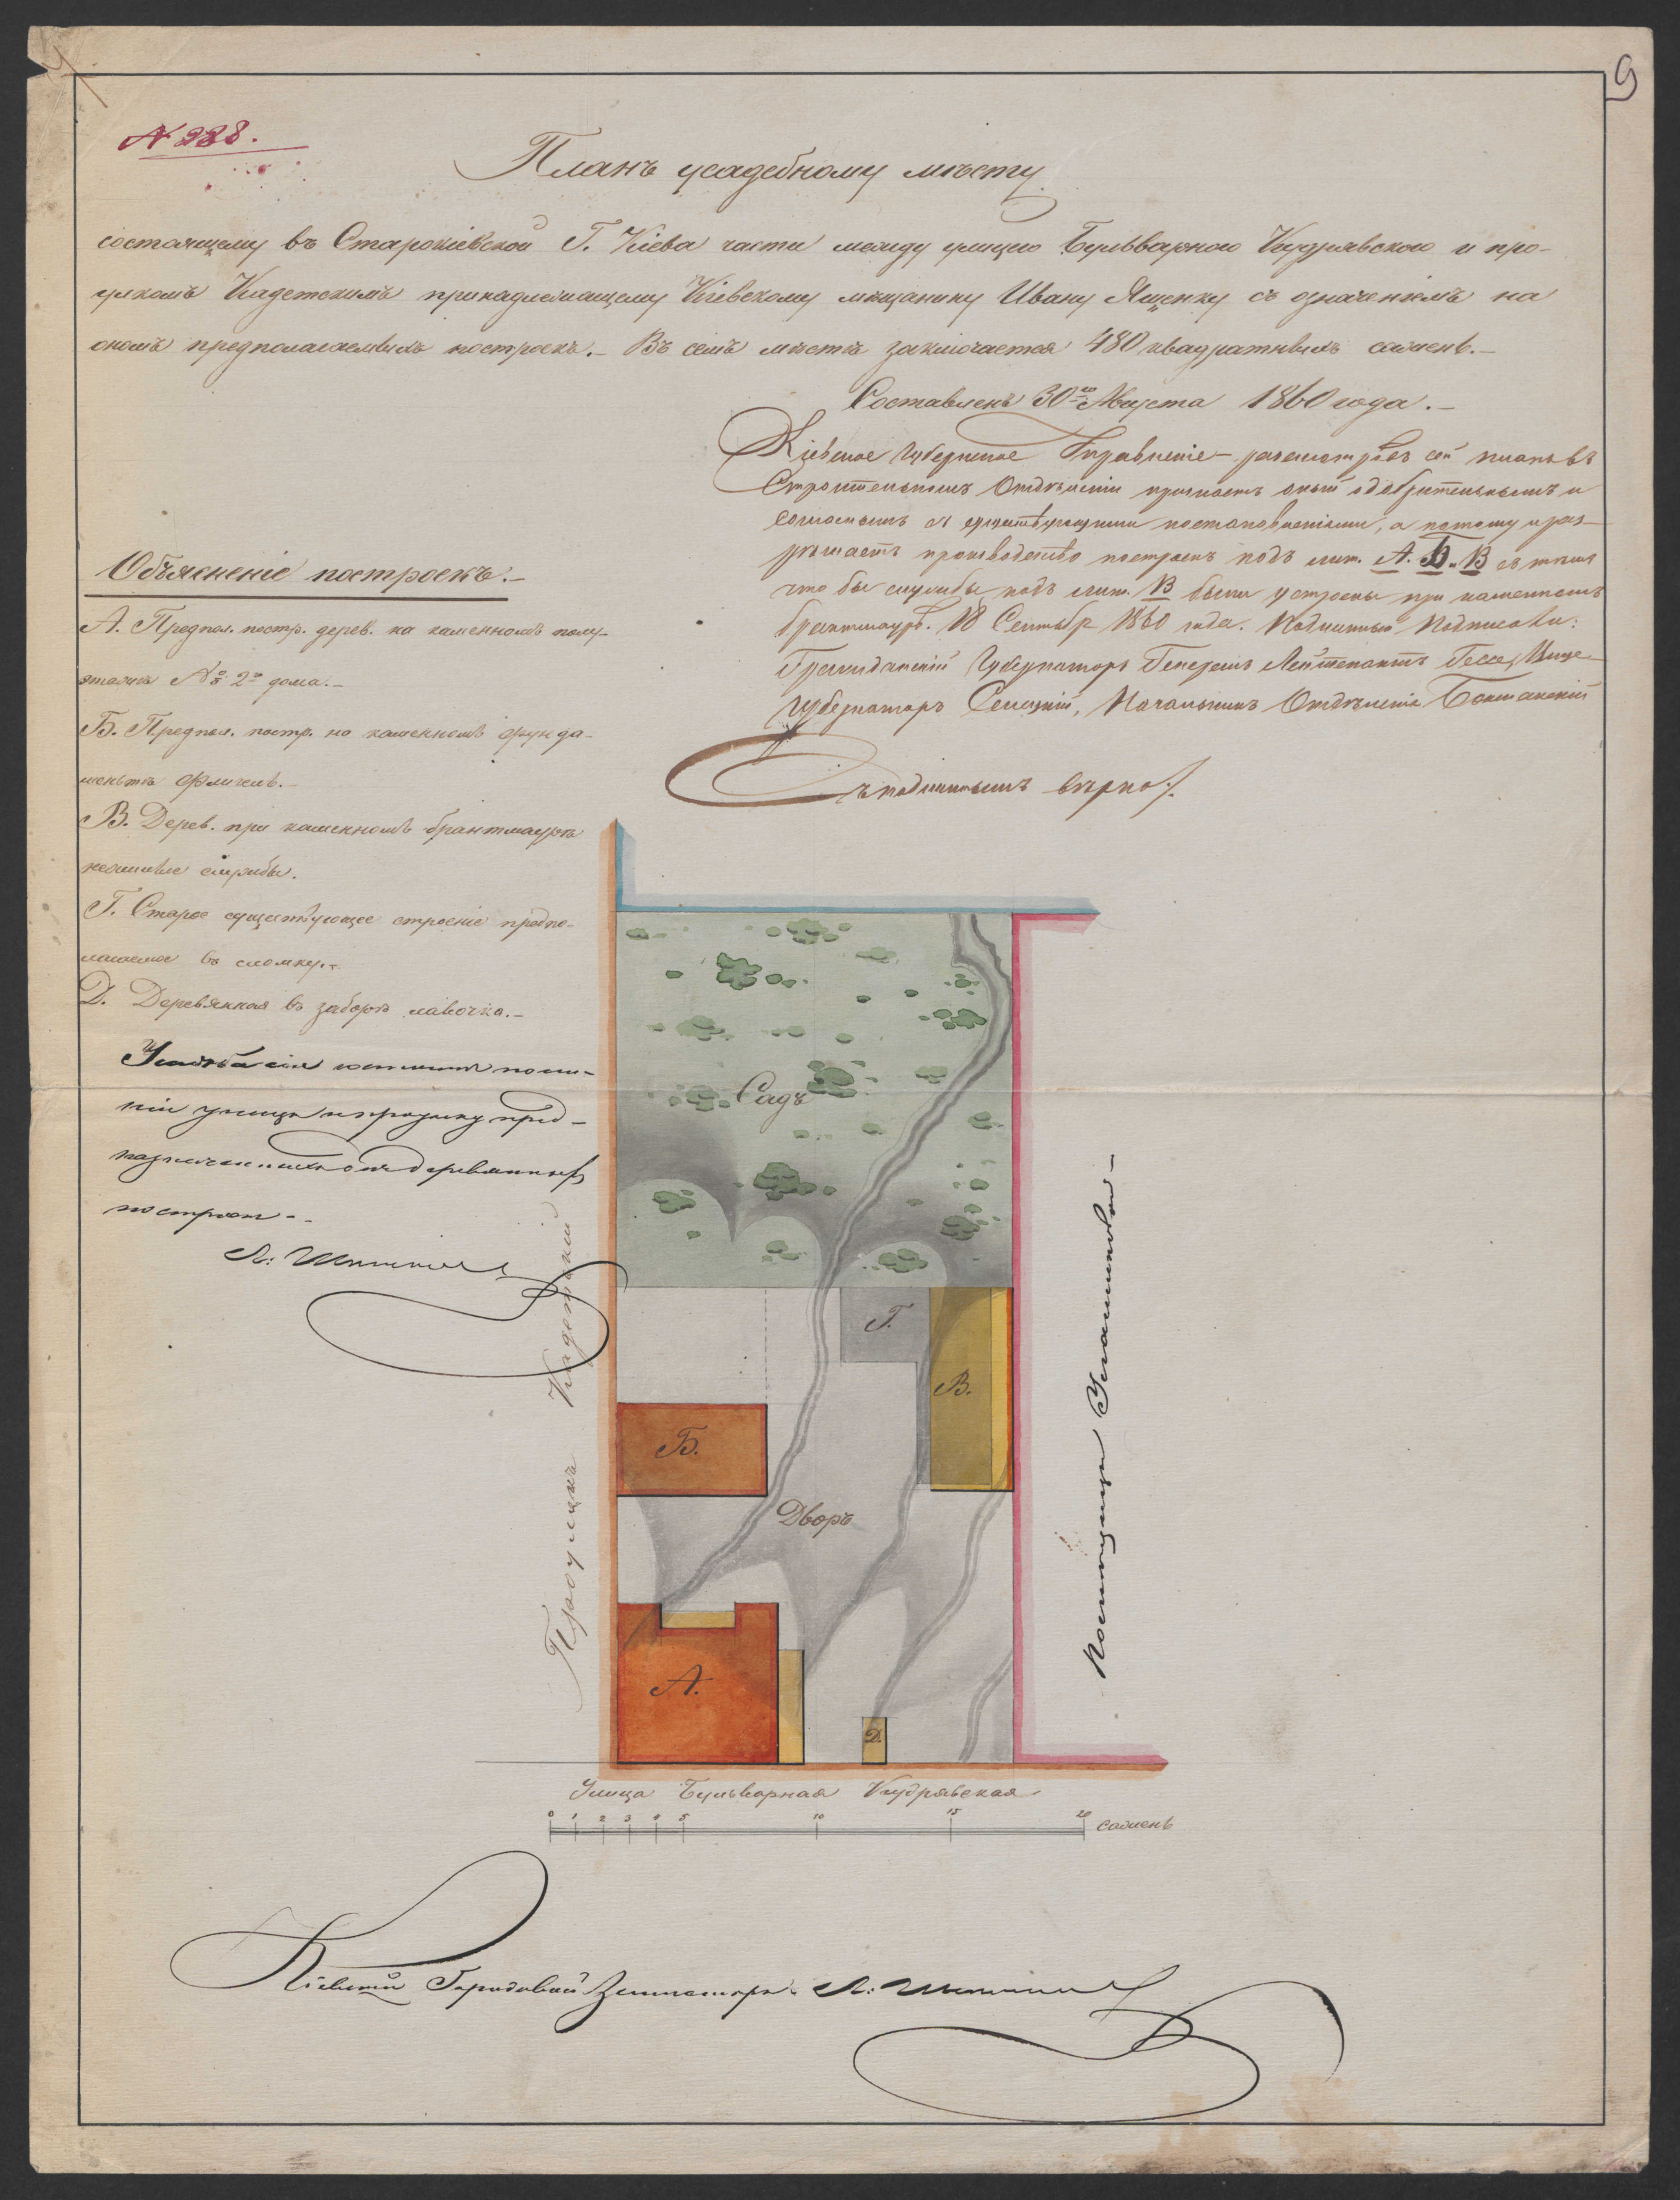 9
№ 228.
Планъ усадебному мѣсту
состоящему въ Старокіевской Г. Кіева части между улицею Бульварною Кудрявскою и про-
улкомъ Кадетскимъ принадлежащему Кіевскому мѣщанину Ивану Ященку съ означеніемъ на
ономъ предполагаемыхъ построекъ.- Въ семъ мѣстѣ заключается 480 квадратныхъ саженъ.-
Составленъ 30го Августа 1860 года.-
Кіевское Губернское Правленіе разсмотрѣвъ сей планъ въ
Строительномъ Отдѣленіи признаетъ оный одобрительнымъ и
согласнымъ съ существующими постановленіями, а потому и раз-
рѣшаетъ производство построекъ подъ лит. А. Б. и В съ тѣмъ
что бы службы подъ лит. В были устроены при каменномъ
брантмауръ. 18 Сентябр 1860 года. Подлинный подписали:
Гражданскій Губернаторъ Генералъ Лейтенантъ Гессе, Вице-
Губернаторъ Селецкій, Начальникъ Отдѣленія
Съ подлиннымъ вѣрно
Объясненіе построекъ.-
А. Предпол. постр. дерев. на каменномъ полу-
этажѣ № 2о дома.-
Б. Предпол. постр. на каменномъ фунда-
ментѣ флигель.-
В. Дерев. при каменномъ брантмаурѣ
нежилые службы.
Г. Старое существующее строеніе предпо-
лагаемое въ сломку.-
Д. Деревянная въ заборѣ лавочка.-
Усадьба сія состоитъ по ли-
ніи улицы и проулку пред-
назначеннымъ для деревянныхъ
построек-
Л:
Садъ
Г.
В.
Б.
Дворъ
А.
Д
Проулокъ Кадетскій
Улица Бульварная Кудрявская
0 1 2 3 4 5 10 15 20 саженъ
Кіевскій Городовой Землемѣръ Л: